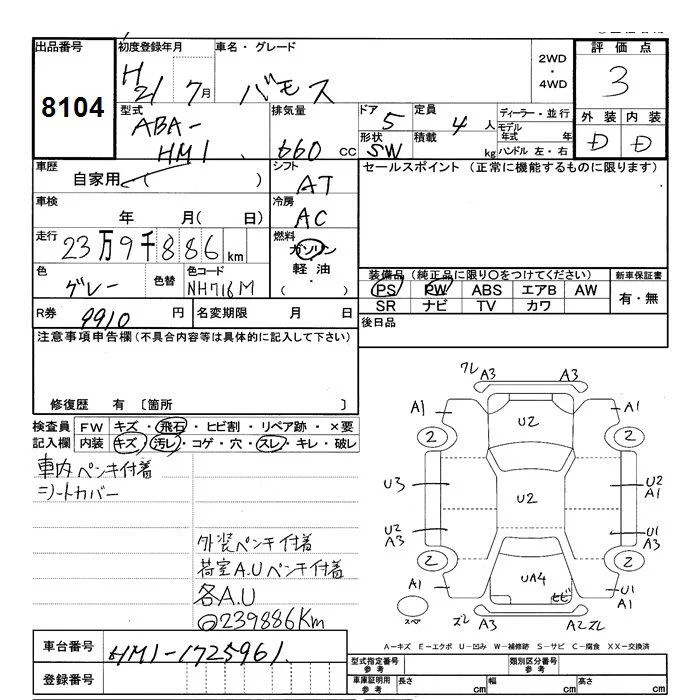 出品番号
8104
初度登録年月
H 21 7月
車名・グレード
バモス
2WD
・
4WD
評価点
3
外装 内装
D D
型式
ABA-
HM1
排気量
660 cc
ドア
5
定員
4 人
形状
SW
積載
kg
ディーラー・並行
モデル年式 年
ハンドル 左・右
車歴
自家用 ( )
シフト
AT
セールスポイント (正常に機能するものに限ります)
車検
年 月( 日)
冷房
AC
走行
23万9千886km
燃料
ガソリン
軽油
( ・ )
色
グレー
色替
色コード
NH716M
装備品 (純正品に限り〇をつけてください)
PS PW ABS エアB AW
SR ナビ TV カワ
新車保証書
有・無
R券 9910 円
名変期限 月 日
後日品
注意事項申告欄(不具合内容等は具体的に記入して下さい)
修復歴 有 〔箇所 〕
検査員記入欄
FW キズ・飛石・ヒビ割・リペア跡・×要
内装 キズ・汚レ・コゲ・穴・スレ・キレ・破レ
車内ペンキ付着
シートカバー
外装ペンキ付着
荷室A.Uペンキ付着
各A.U
239886Km
ワレ A3 A3
A1 A1
2 U2 2
U3 U2 U2 A1
U2 A3 U1 A3
2 UA4 ヒビ 2
A1 U1 A1
スペア
ズレ A3 A2 ズレ
A－キズ E－エクボ U－凹み W－補修跡 S－サビ C－腐食 XX－交換済
車台番号
HM1-1725961
登録番号
型式指定番号 参考
類別区分番号 参考
車庫証明用 参考
長さ cm 幅 cm 高さ cm